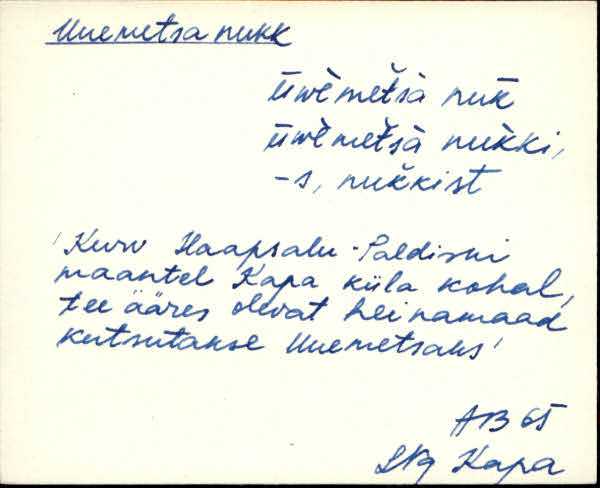 Uuemetsa nukk
üwèmet̆sà nuk̆
üwèmet̆sà nuk̆ki,
-s, nuk̆kist
'Kurv Haapsalu-Paldiski
maantel Kapa küla kohal,
tee ääres olevat heinamaad
kutsutakse Uuemetsaks'
AB 65
LNg Kapa